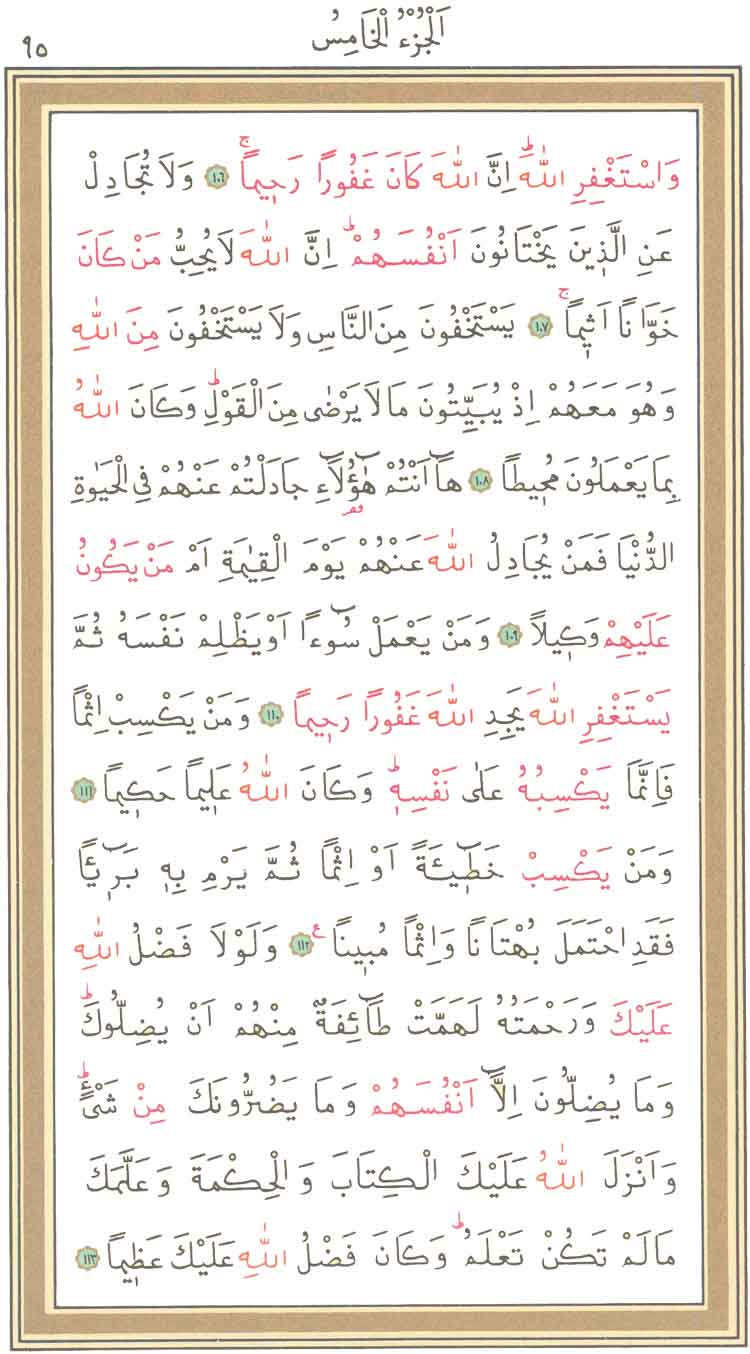 اَلْجُزْءُ الْخَامِسُ
٩٥
وَاسْتَغْفِرِ اللّٰهَؕ اِنَّ اللّٰهَ كَانَ غَفُورًا رَحٖيمًاۚ ١٠٦ وَلَا تُجَادِلْ
عَنِ الَّذٖينَ يَخْتَانُونَ اَنْفُسَهُمْؕ اِنَّ اللّٰهَ لَا يُحِبُّ مَنْ كَانَ
خَوَّانًا اَثٖيمًاۚ ١٠٧ يَسْتَخْفُونَ مِنَ النَّاسِ وَلَا يَسْتَخْفُونَ مِنَ اللّٰهِ
وَهُوَ مَعَهُمْ اِذْ يُبَيِّتُونَ مَا لَا يَرْضٰى مِنَ الْقَوْلِؕ وَكَانَ اللّٰهُ
بِمَا يَعْمَلُونَ مُحٖيطًا ١٠٨ هَٓا اَنْتُمْ هٰٓؤُ۬لَٓاءِ جَادَلْتُمْ عَنْهُمْ فِي الْحَيٰوةِ
الدُّنْيَا فَمَنْ يُجَادِلُ اللّٰهَ عَنْهُمْ يَوْمَ الْقِيٰمَةِ اَمْ مَنْ يَكُونُ
عَلَيْهِمْ وَكٖيلًا ١٠٩ وَمَنْ يَعْمَلْ سُٓوءًا اَوْ يَظْلِمْ نَفْسَهُ ثُمَّ
يَسْتَغْفِرِ اللّٰهَ يَجِدِ اللّٰهَ غَفُورًا رَحٖيمًا ١١٠ وَمَنْ يَكْسِبْ اِثْمًا
فَاِنَّمَا يَكْسِبُهُ عَلٰى نَفْسِهٖؕ وَكَانَ اللّٰهُ عَلٖيمًا حَكٖيمًا ١١١
وَمَنْ يَكْسِبْ خَطٖٓيـَٔةً اَوْ اِثْمًا ثُمَّ يَرْمِ بِهٖ بَرٖٓيـًٔا
فَقَدِ احْتَمَلَ بُهْتَانًا وَاِثْمًا مُبٖينًا ع ١١٢ وَلَوْلَا فَضْلُ اللّٰهِ
عَلَيْكَ وَرَحْمَتُهُ لَهَمَّتْ طَٓائِفَةٌ مِنْهُمْ اَنْ يُضِلُّوكَؕ
وَمَا يُضِلُّونَ اِلَّٓا اَنْفُسَهُمْ وَمَا يَضُرُّونَكَ مِنْ شَيْءٍؕ
وَاَنْزَلَ اللّٰهُ عَلَيْكَ الْكِتَابَ وَالْحِكْمَةَ وَعَلَّمَكَ
مَا لَمْ تَكُنْ تَعْلَمُؕ وَكَانَ فَضْلُ اللّٰهِ عَلَيْكَ عَظٖيمًا ١١٣